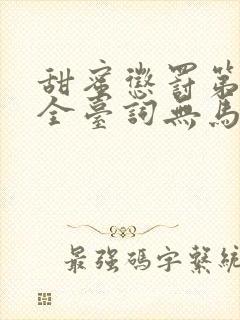 甜蜜懲罰第
全臺詞無馬
最强碼字繫統